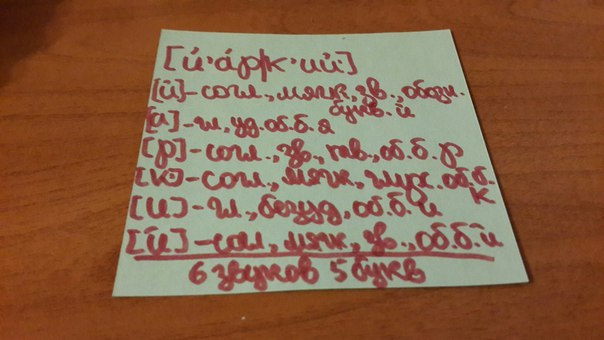 [й'áр/к'ий]
[й]-согл., мягк., зв., обозн.
букв. й
[а]-гл, уд. об. б. а
[р]-согл., зв., тв., об. б. р
[к]-согл., мягк, глух. об. б.
к
[и]-гл, безуд, об. б. и
[й]-согл, мягк, зв., об. б. й
6 звуков 5 букв